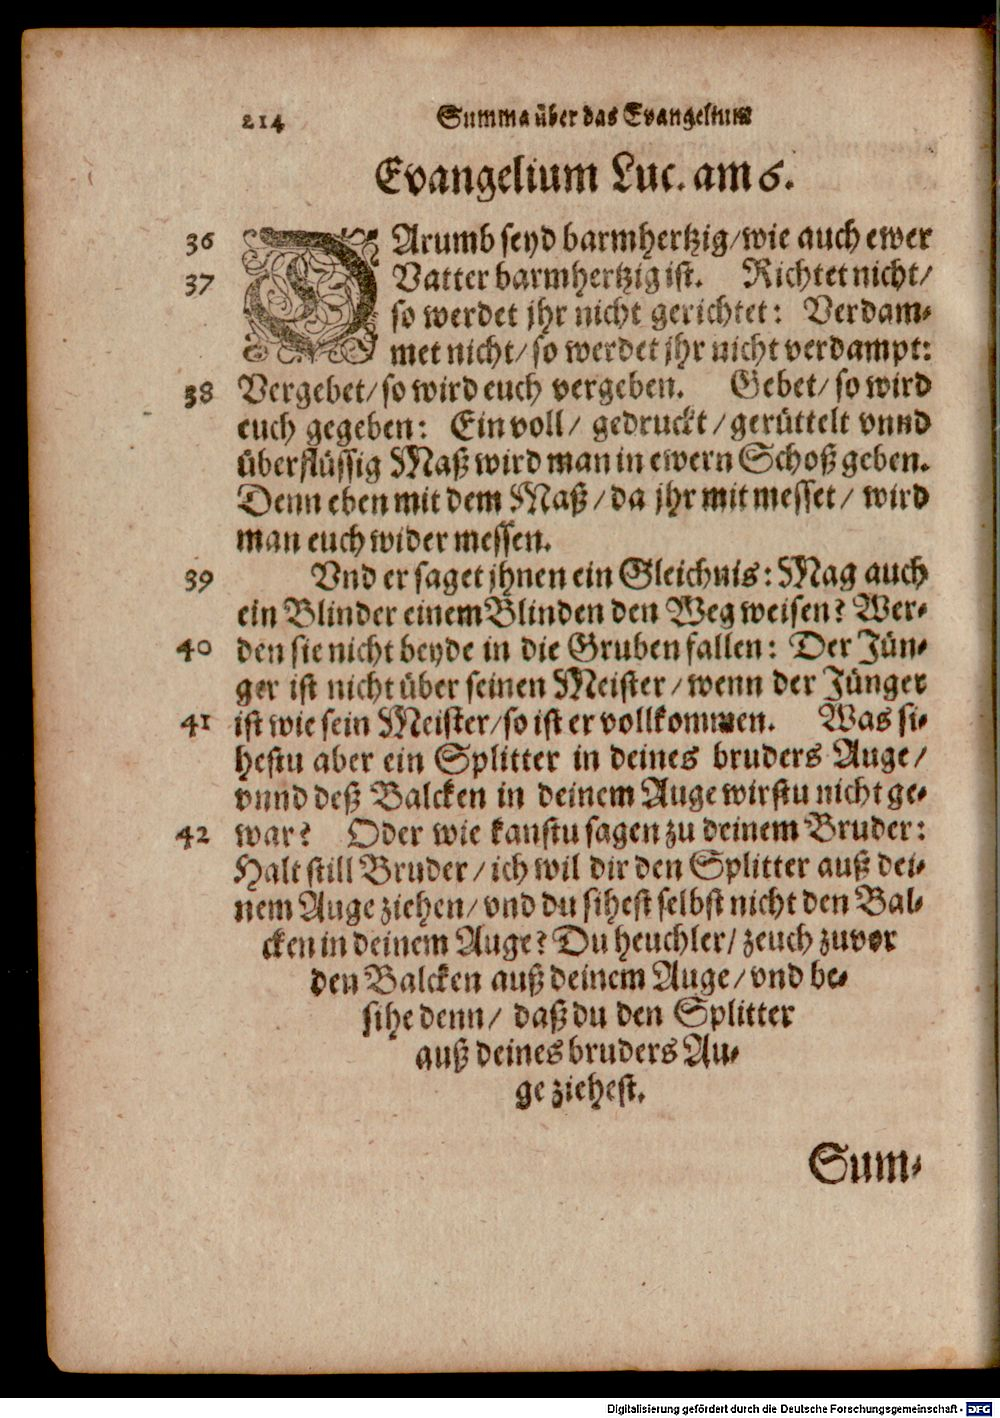 214 Summa über das Evangelium
Evangelium Luc. am 6.
36 DArumb seyd barmhertzig/wie auch ewer
37 Vatter barmhertzig ist. Richtet nicht/
so werdet jhr nicht gerichtet: Verdam-
met nicht/ so werdet jhr nicht verdampt:
38 Vergebet/ so wird euch vergeben. Gebet/ so wird
euch gegeben: Ein voll/ gedruckt/ gerüttelt vnnd
überflüssig Maß wird man in ewern Schoß geben.
Denn eben mit dem Maß/ da jhr mit messet/ wird
man euch wider messen.
39 Vnd er saget jhnen ein Gleichnis: Mag auch
ein Blinder einem Blinden den Weg weisen? Wer-
40 den sie nicht beyde in die Gruben fallen: Der Jün-
ger ist nicht über seinen Meister/ wenn der Jünger
41 ist wie sein Meister/ so ist er vollkommen. Was si-
hestu aber ein Splitter in deines bruders Auge/
vnnd deß Balcken in deinem Auge wirstu nicht ge-
42 war? Oder wie kanstu sagen zu deinem Bruder:
Halt still Bruder/ ich wil dir den Splitter auß dei-
nem Auge ziehen/ vnd du sihest selbst nicht den Bal-
cken in deinem Auge? Du heuchler/ zeuch zuvor
den Balcken auß deinem Auge/ vnd be-
sihe denn/ daß du den Splitter
auß deines bruders Au-
ge ziehest.
Sum-
Digitalisierung gefördert durch die Deutsche Forschungsgemeinschaft - DFG